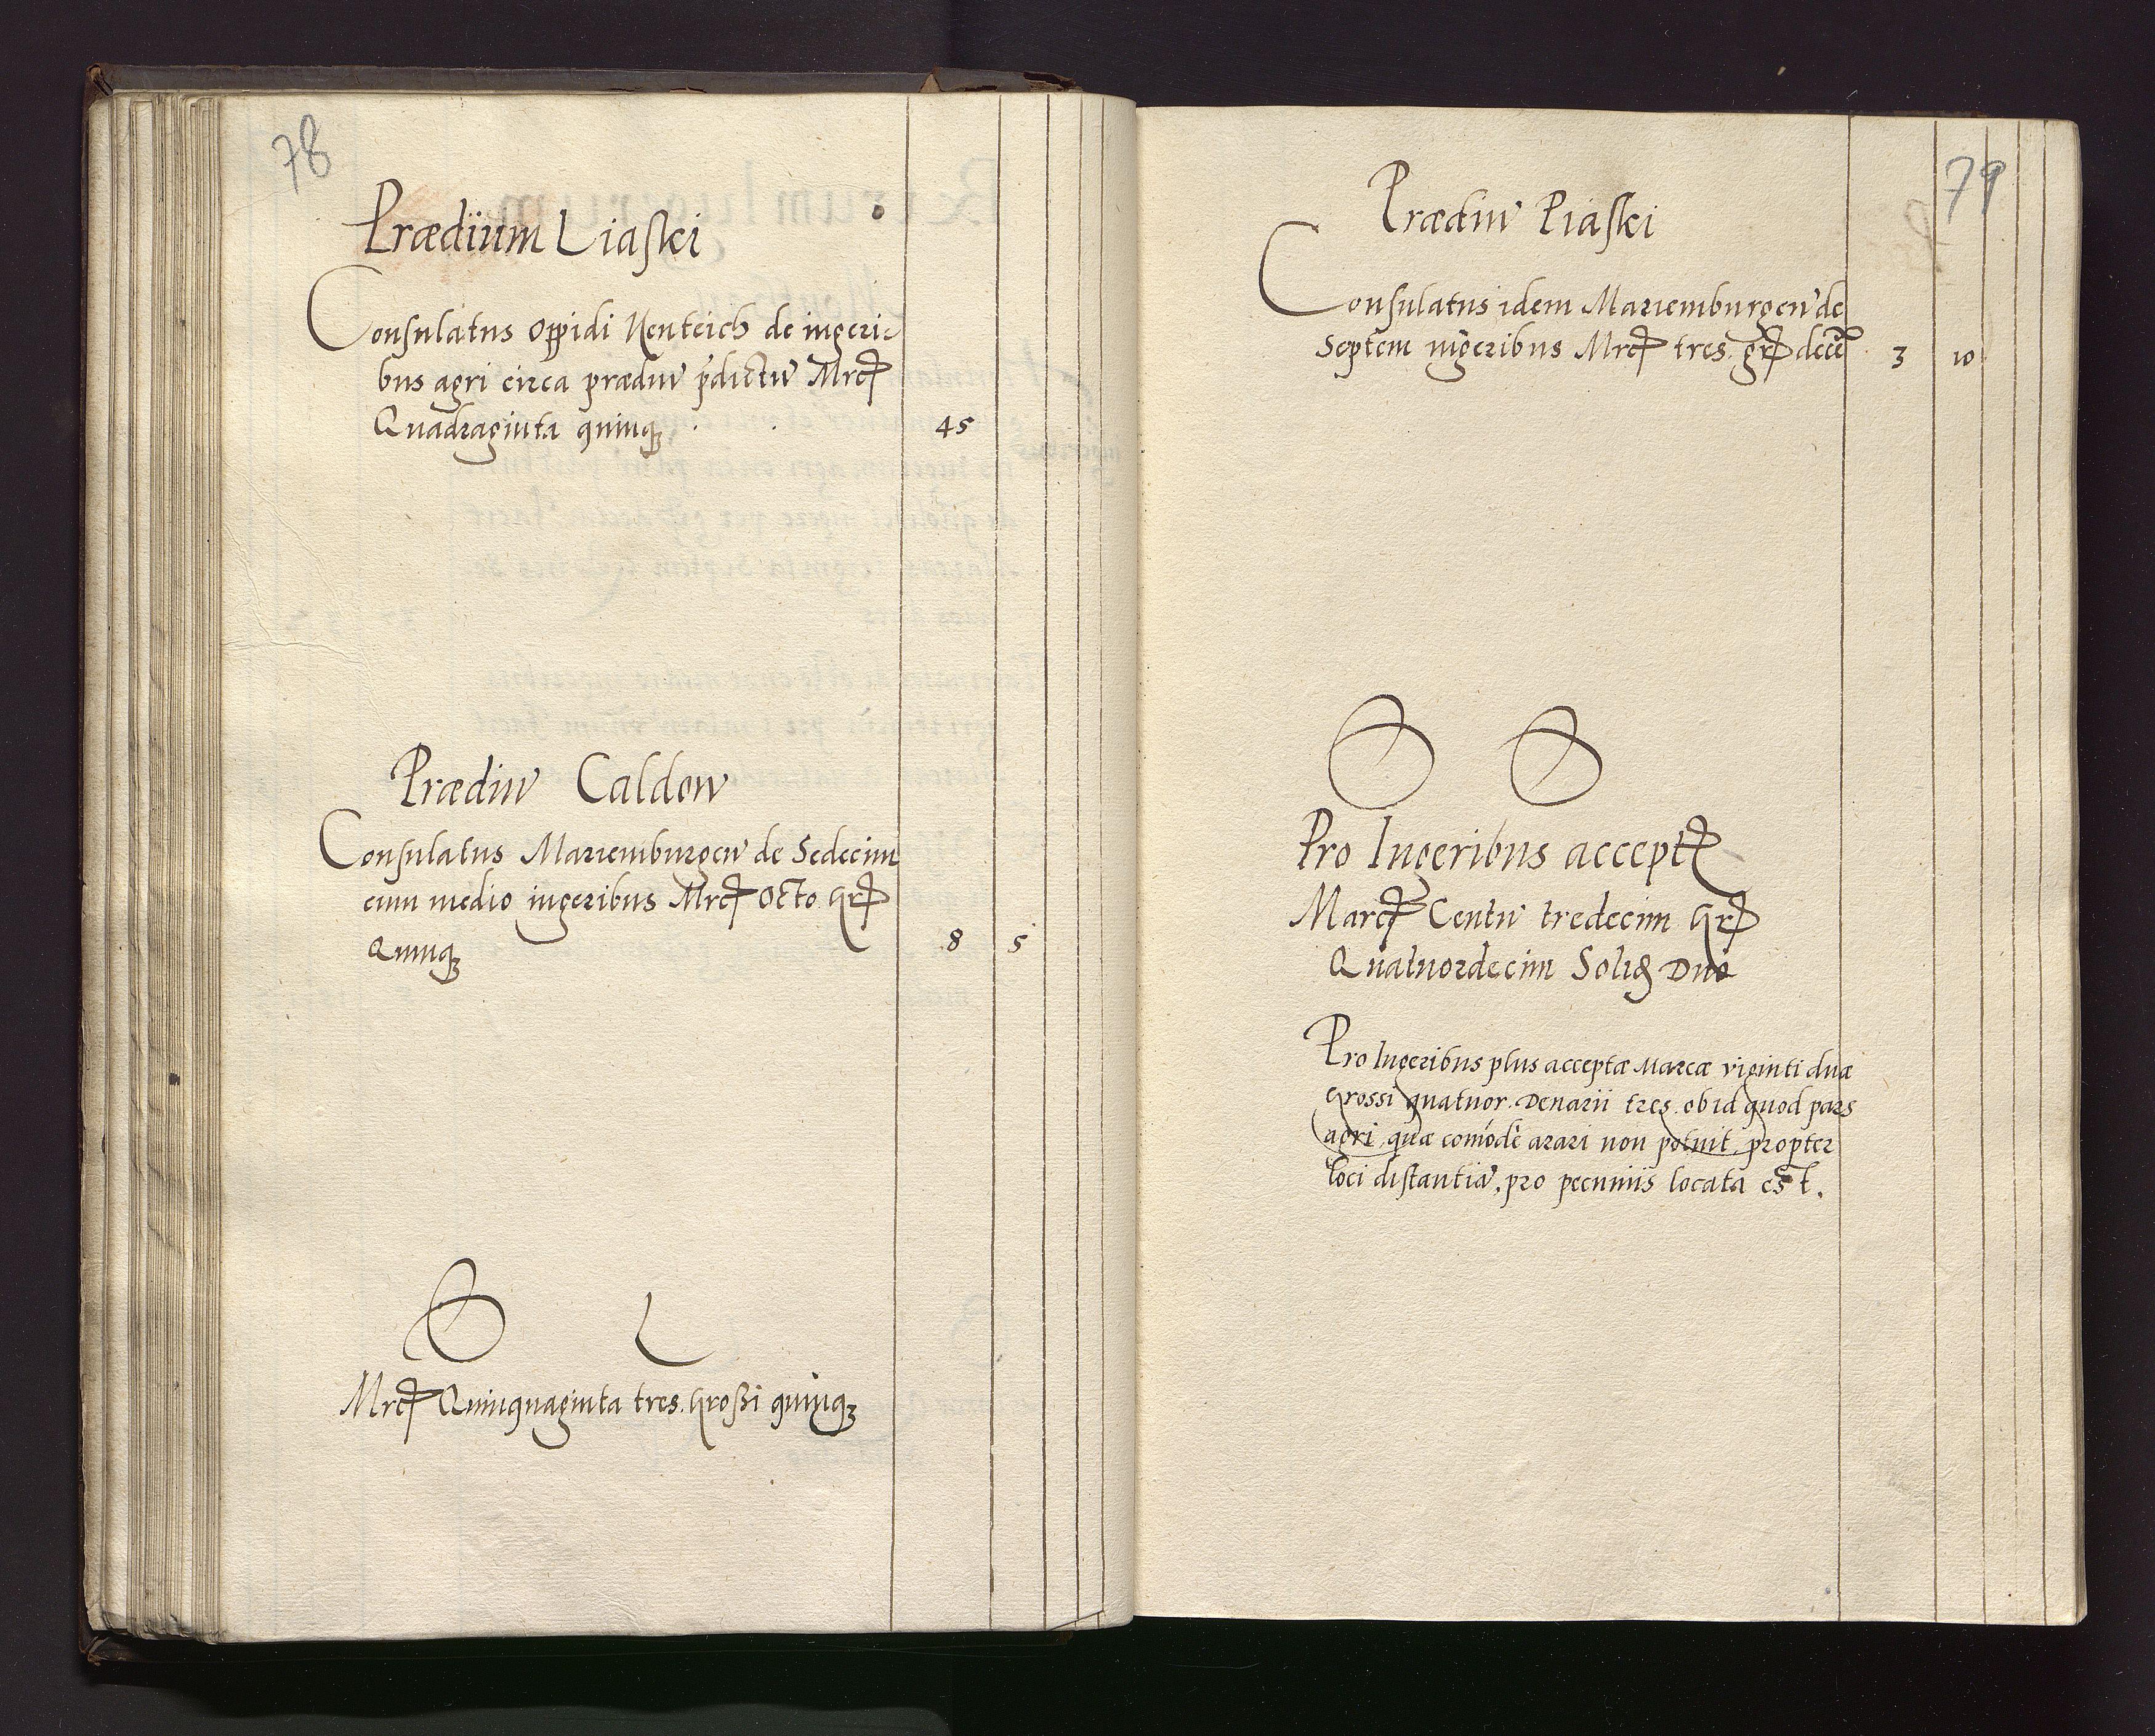 78
Prædium Liaski
Consulatus Oppidi Nenteich de iugeri=
bus agri circa prædiũ p̃dictũ Mrcꝭ
Quadraginta quinqꝫ . . 45
Prædiũ Caldow
Consulatus Mariemburgeñ de Sedecim
cum medio iugeribus Mrcꝭ Octo Grꝭ
Quinqꝫ 8 5
Mrcꝭ Quinquaginta tres. Großi quinqꝫ
79
Prædiũ Piaski
Consulatus idem Mariemburgeñ de
Septem iugeribus Mrcꝭ tres. grꝭ decẽ 3 10
Pro Iugeribus acceptꝭ
Marcꝭ Centũ tredecim Grꝭ
Quatuordecim Solidꝭ Duo
Pro Iugeribus plus acceptæ Marcæ viginti duæ
Grossi quatuor. Denarii tres. ob id quod pars
agri, quæ comódè arari non potuit, propter
loci distantiã, pro pecuniis locata est.